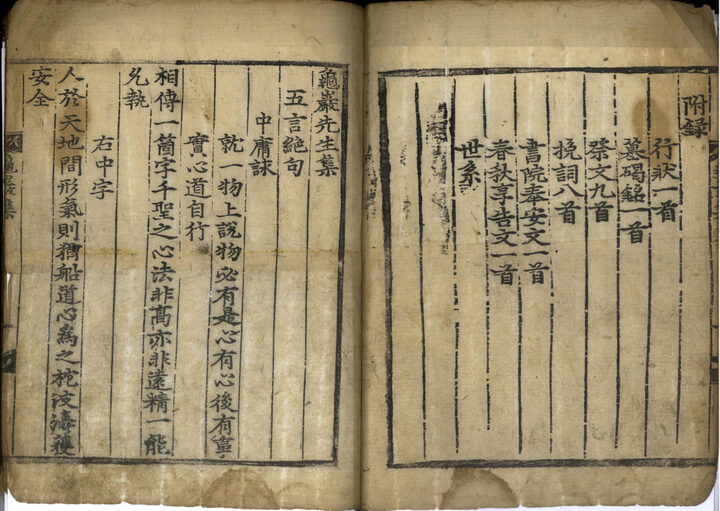 附録
行狀一首
墓碣銘一首
祭文九首
挽詞八首
書院奉安文一首
春秋享告文一首
世系
龜巖先生集
五言絶句
中庸詠
就一物上說物必有是心有心後有實
實心道自行
相傳一箇字千聖之心法非高亦非遠精一能
允執
右中字
人於天地間形氣則猶船道心爲之柁波濤獲
安全
龜巖集